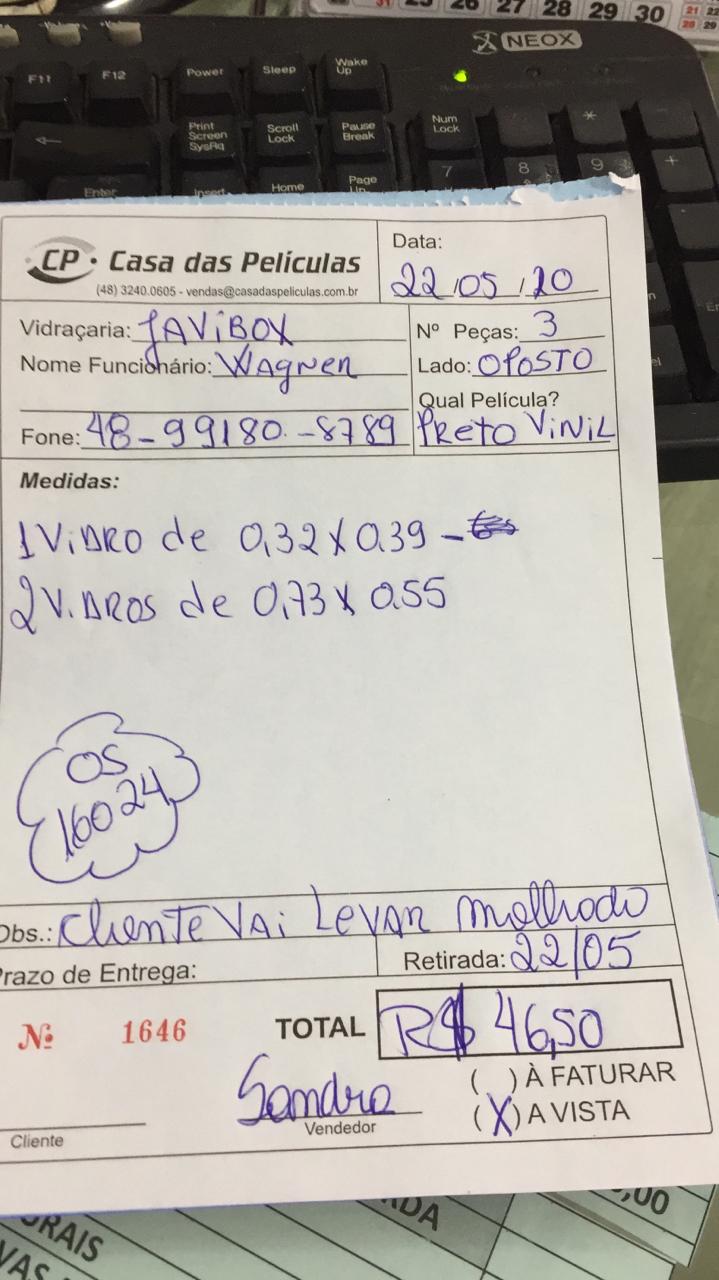 31 25 26 27 28 29 30
21 22
28 29
NEOX
F11 F12 Power Sleep Wake Up
Print Screen SysRq Scroll Lock Pause Break Num Lock *
← 7 8 9 +
Enter Insert Home Page Up
CP • Casa das Películas
(48) 3240.0605 - vendas@casadaspeliculas.com.br
Data:
22/05/20
Vidraçaria: JAViBOX
Nº Peças: 3
Nome Funcionário: WAgner
Lado: OPOSTO
Qual Película?
Fone: 48-99180-8789
PRETO ViNiL
Medidas:
1 ViDRO de 0,32 X 0,39 -
2 ViDROS de 0,73 X 0,55
OS
16024
Obs.: CLIENTE VAi LEVAR molhado
Prazo de Entrega:
Retirada: 22/05
Nº 1646
TOTAL R$ 46,50
( ) À FATURAR
Sandro
(X) A VISTA
Vendedor
Cliente
,00
URAIS
VAS